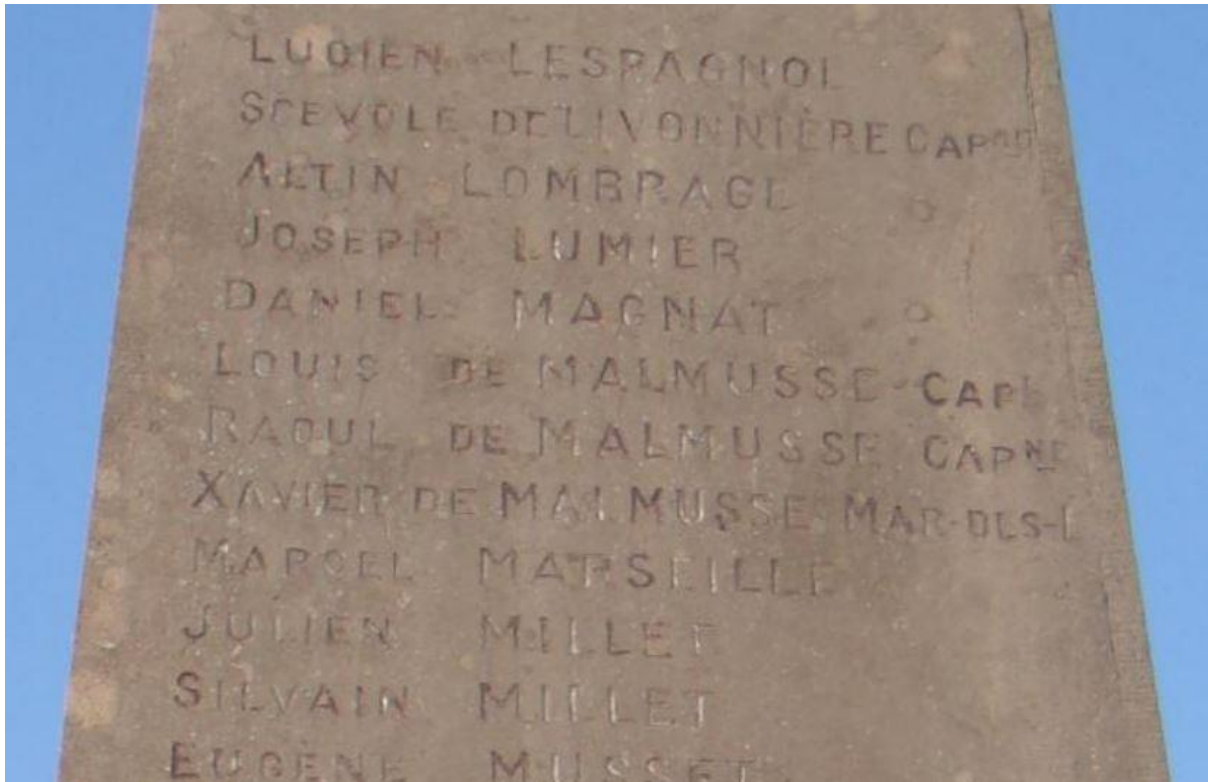 LUCIEN LESPAGNOL
SCEVOLE DE LIVONNIÈRE CAPNE
ALTIN LOMBRAGE
JOSEPH LUMIER
DANIEL MAGNAT
LOUIS DE MALMUSSE CAP
RAOUL DE MALMUSSE CAPNE
XAVIER DE MALMUSSE MAR-DES-L
MARCEL MARSEILLE
JULIEN MILLET
SILVAIN MILLET
EUGÈNE MUSSET